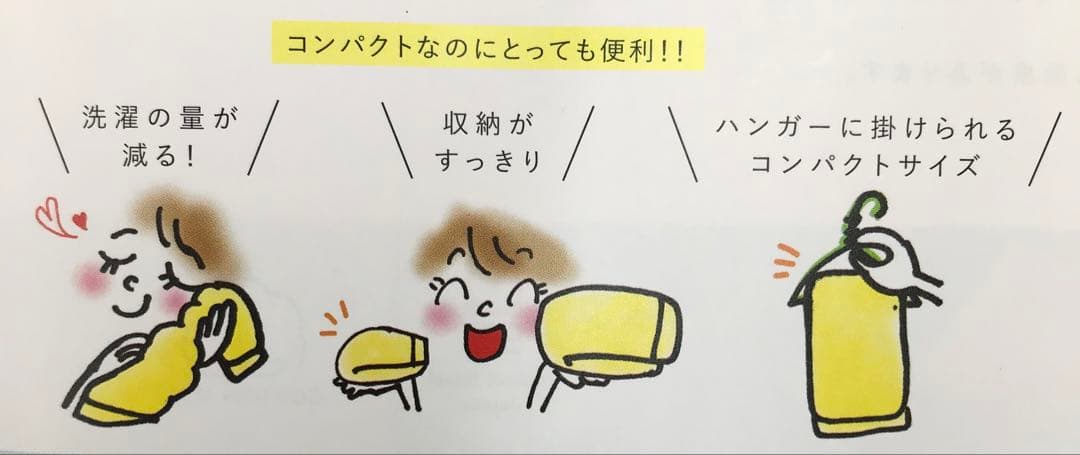 コンパクトなのにとっても便利!!
洗濯の量が
減る!
収納が
すっきり
ハンガーに掛けられる
コンパクトサイズ